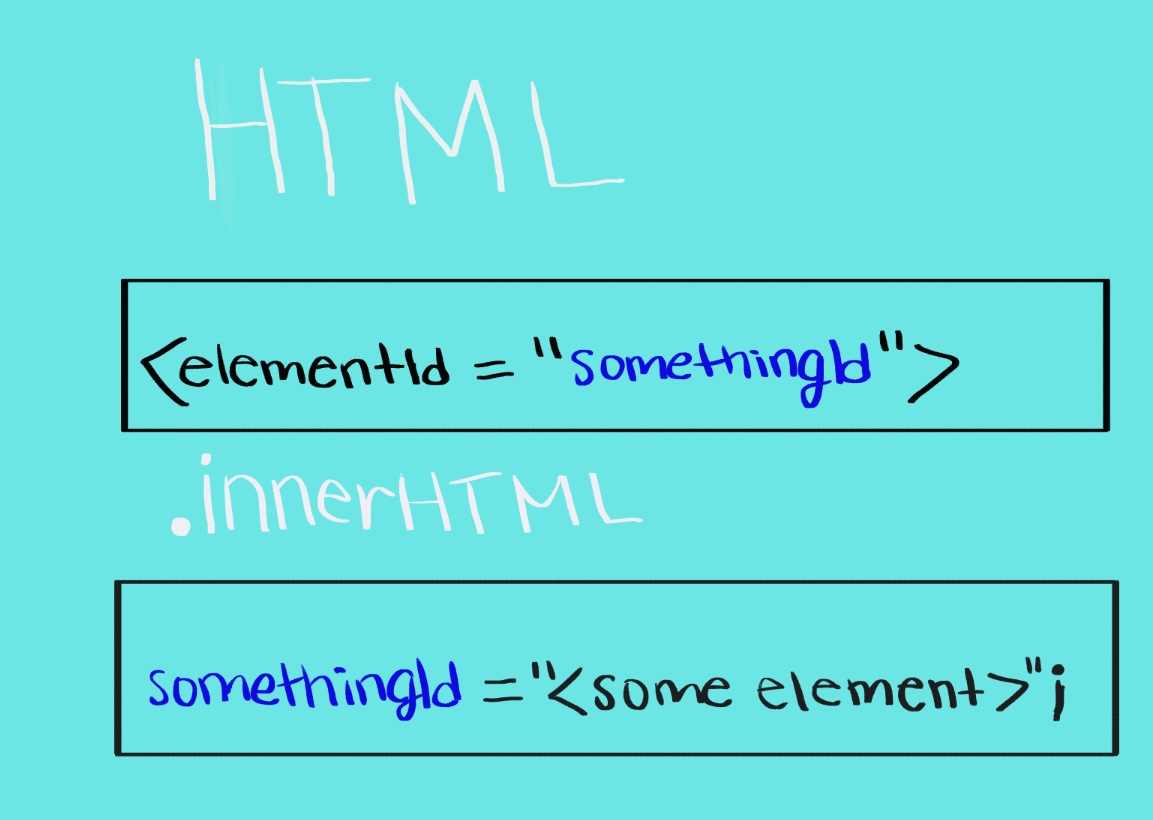 HTML
<elementId = "somethingId">
.innerHTML
somethingId ="<some element>";